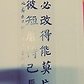 必改得能莫
彼短靡恃己